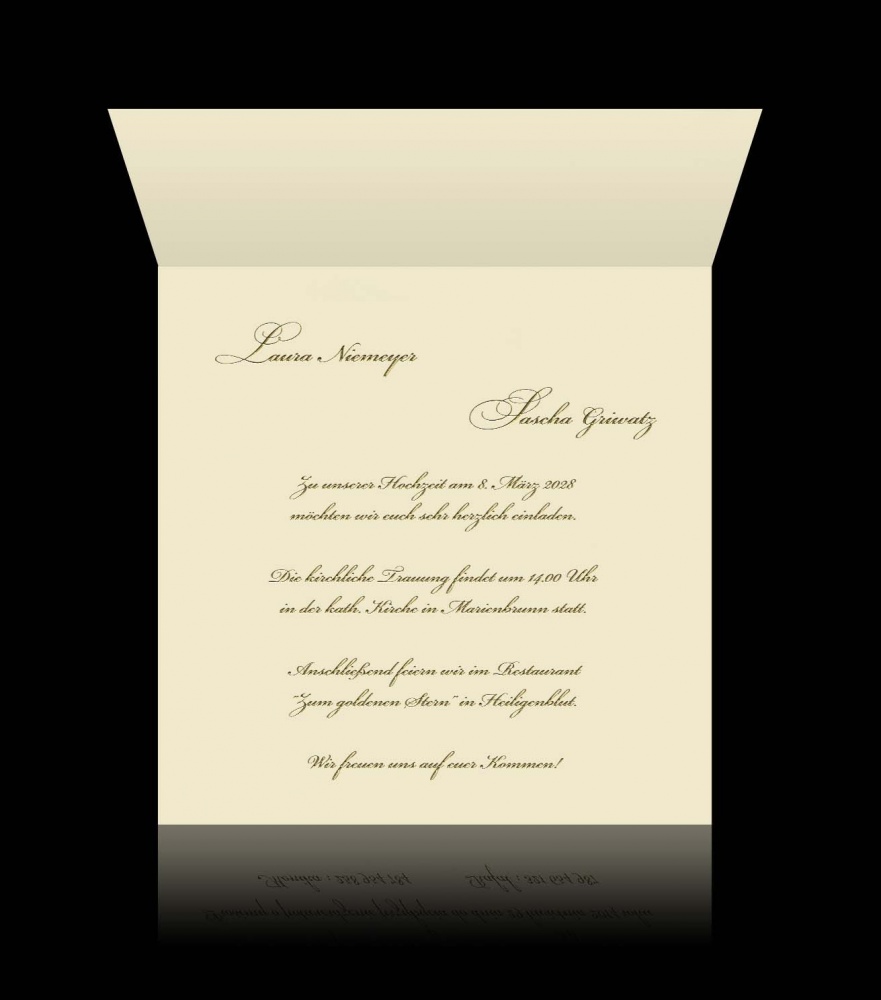 Laura Niemeyer
Sascha Griwatz
Zu unserer Hochzeit am 8. März 2028
möchten wir euch sehr herzlich einladen.
Die kirchliche Trauung findet um 14.00 Uhr
in der kath. Kirche in Marienbrunn statt.
Anschließend feiern wir im Restaurant
"Zum goldenen Stern" in Heiligenblut.
Wir freuen uns auf euer Kommen!